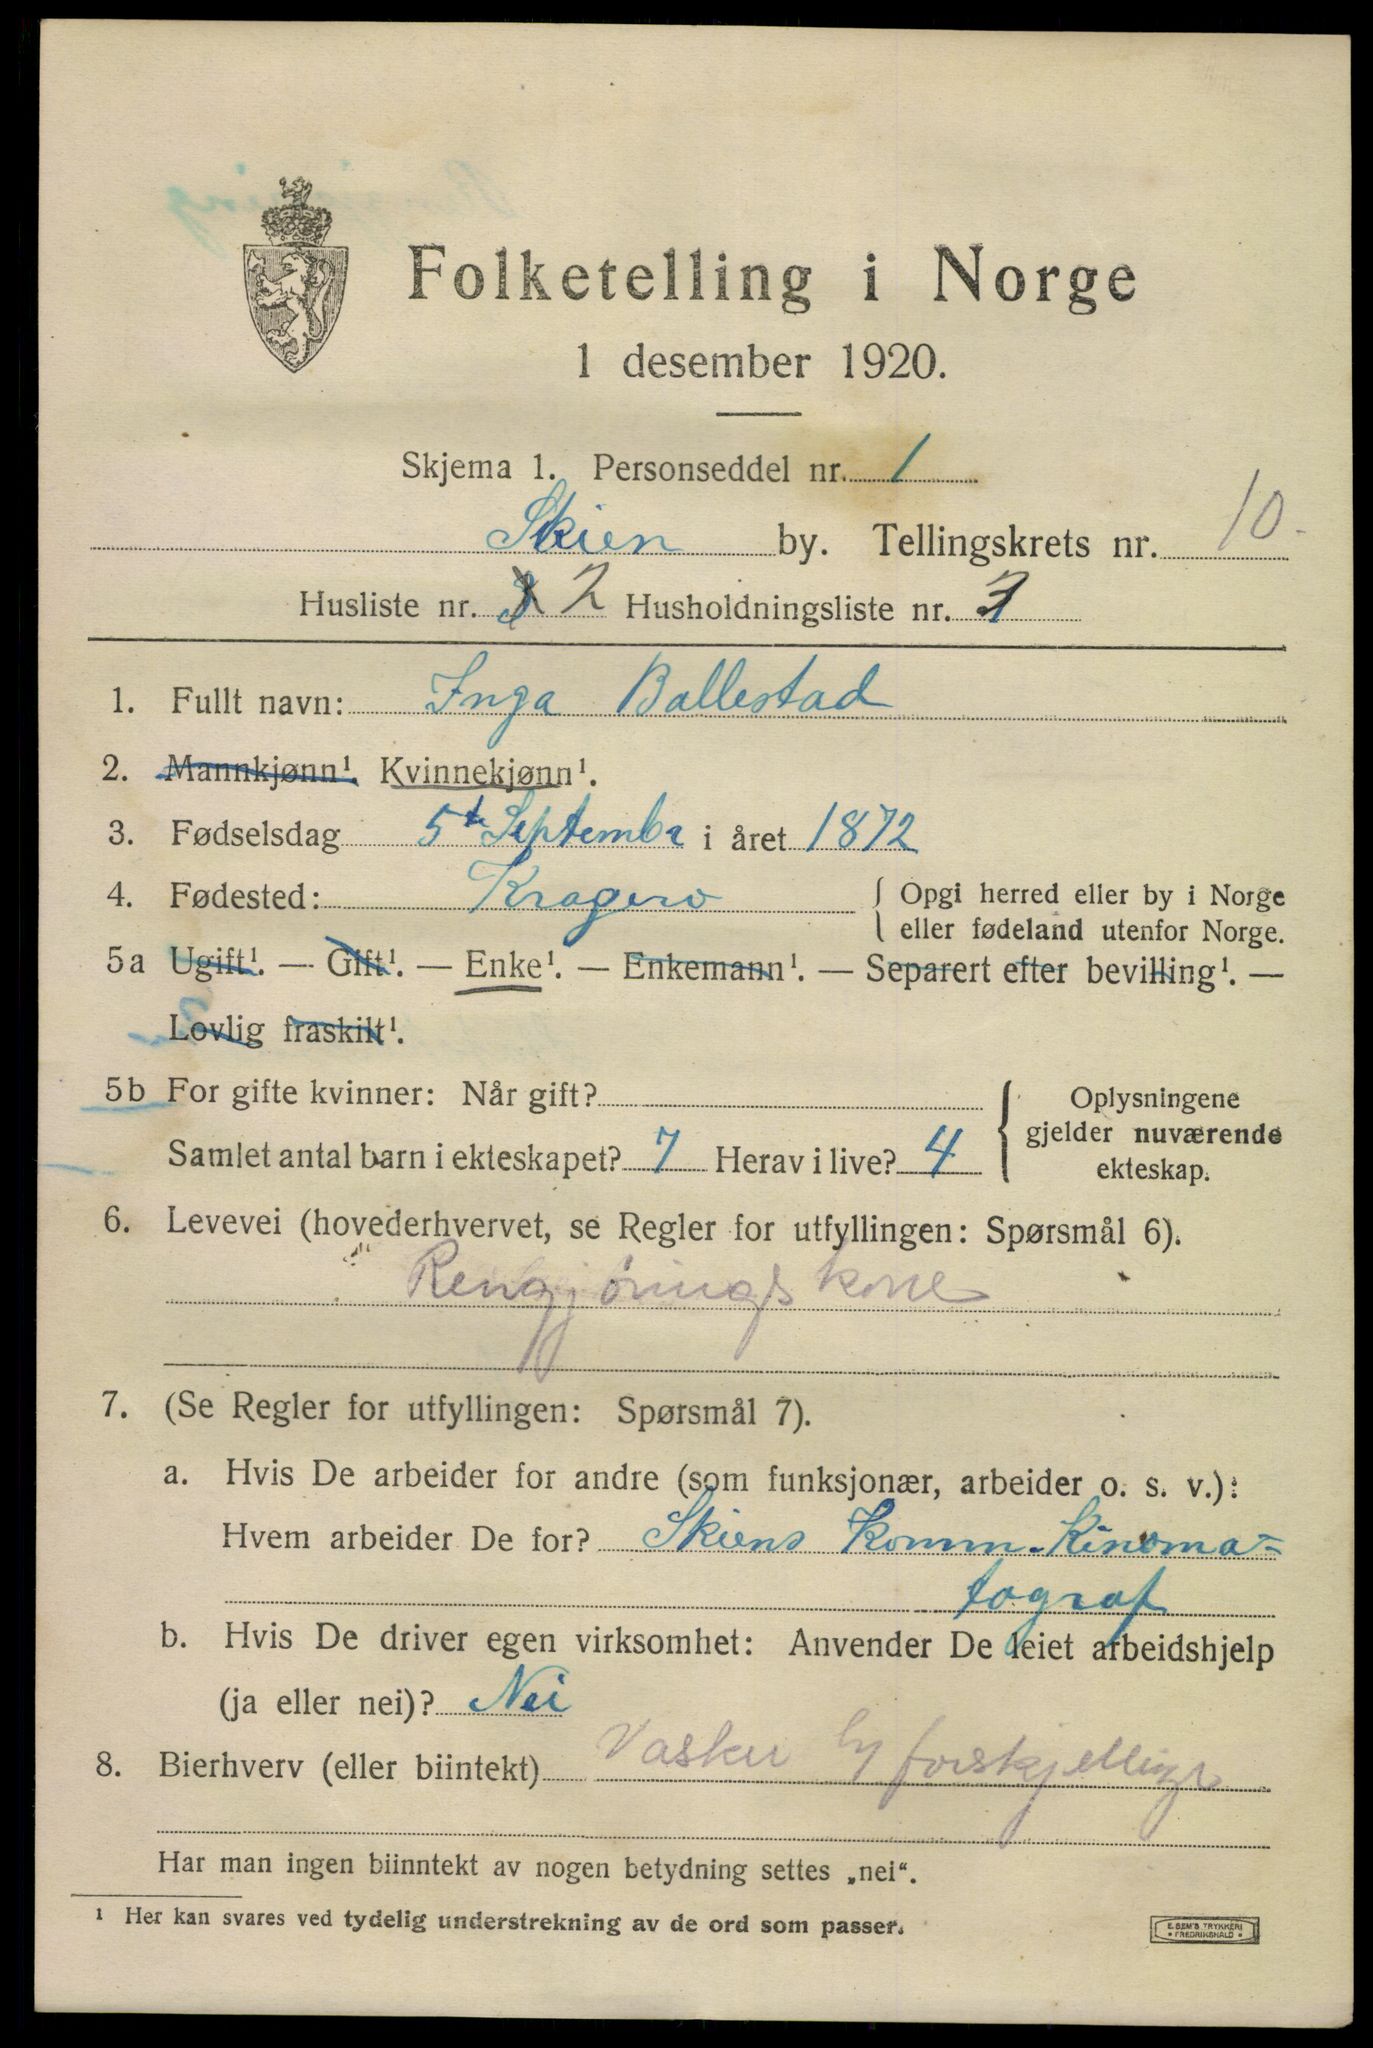 Folketelling i Norge
1 desember 1920.
Skjema 1. Personseddel nr. 1
Skien by. Tellingskrets nr. 10.
Husliste nr. 2 Husholdningsliste nr. 3
1. Fullt navn: Inga Ballestad
2. Mannkjønn¹. Kvinnekjønn¹.
3. Fødselsdag 5te Septembr i året 1872
4. Fødested: Kragerø { Opgi herred eller by i Norge
eller fødeland utenfor Norge.
5a Ugift¹. — Gift¹. — Enke¹. — Enkemann¹. — Separert efter bevilling¹. —
Lovlig fraskilt¹.
5b For gifte kvinner: Når gift? { Oplysningene
gjelder nuværende
Samlet antal barn i ekteskapet? 7 Herav i live? 4
ekteskap.
6. Levevei (hovederhvervet, se Regler for utfyllingen: Spørsmål 6).
Rengjøringskone
7. (Se Regler for utfyllingen: Spørsmål 7).
a. Hvis De arbeider for andre (som funksjonær, arbeider o. s. v.):
Hvem arbeider De for? Skiens Komm. Kinoma-
tograf
b. Hvis De driver egen virksomhet: Anvender De leiet arbeidshjelp
(ja eller nei)? Nei
8. Bierhverv (eller biintekt) Vasker forskjellige
Har man ingen biinntekt av nogen betydning settes „nei“.
¹ Her kan svares ved tydelig understrekning av de ord som passer.
E. SEM'S TRYKKERI
• FREDRIKSHALD •